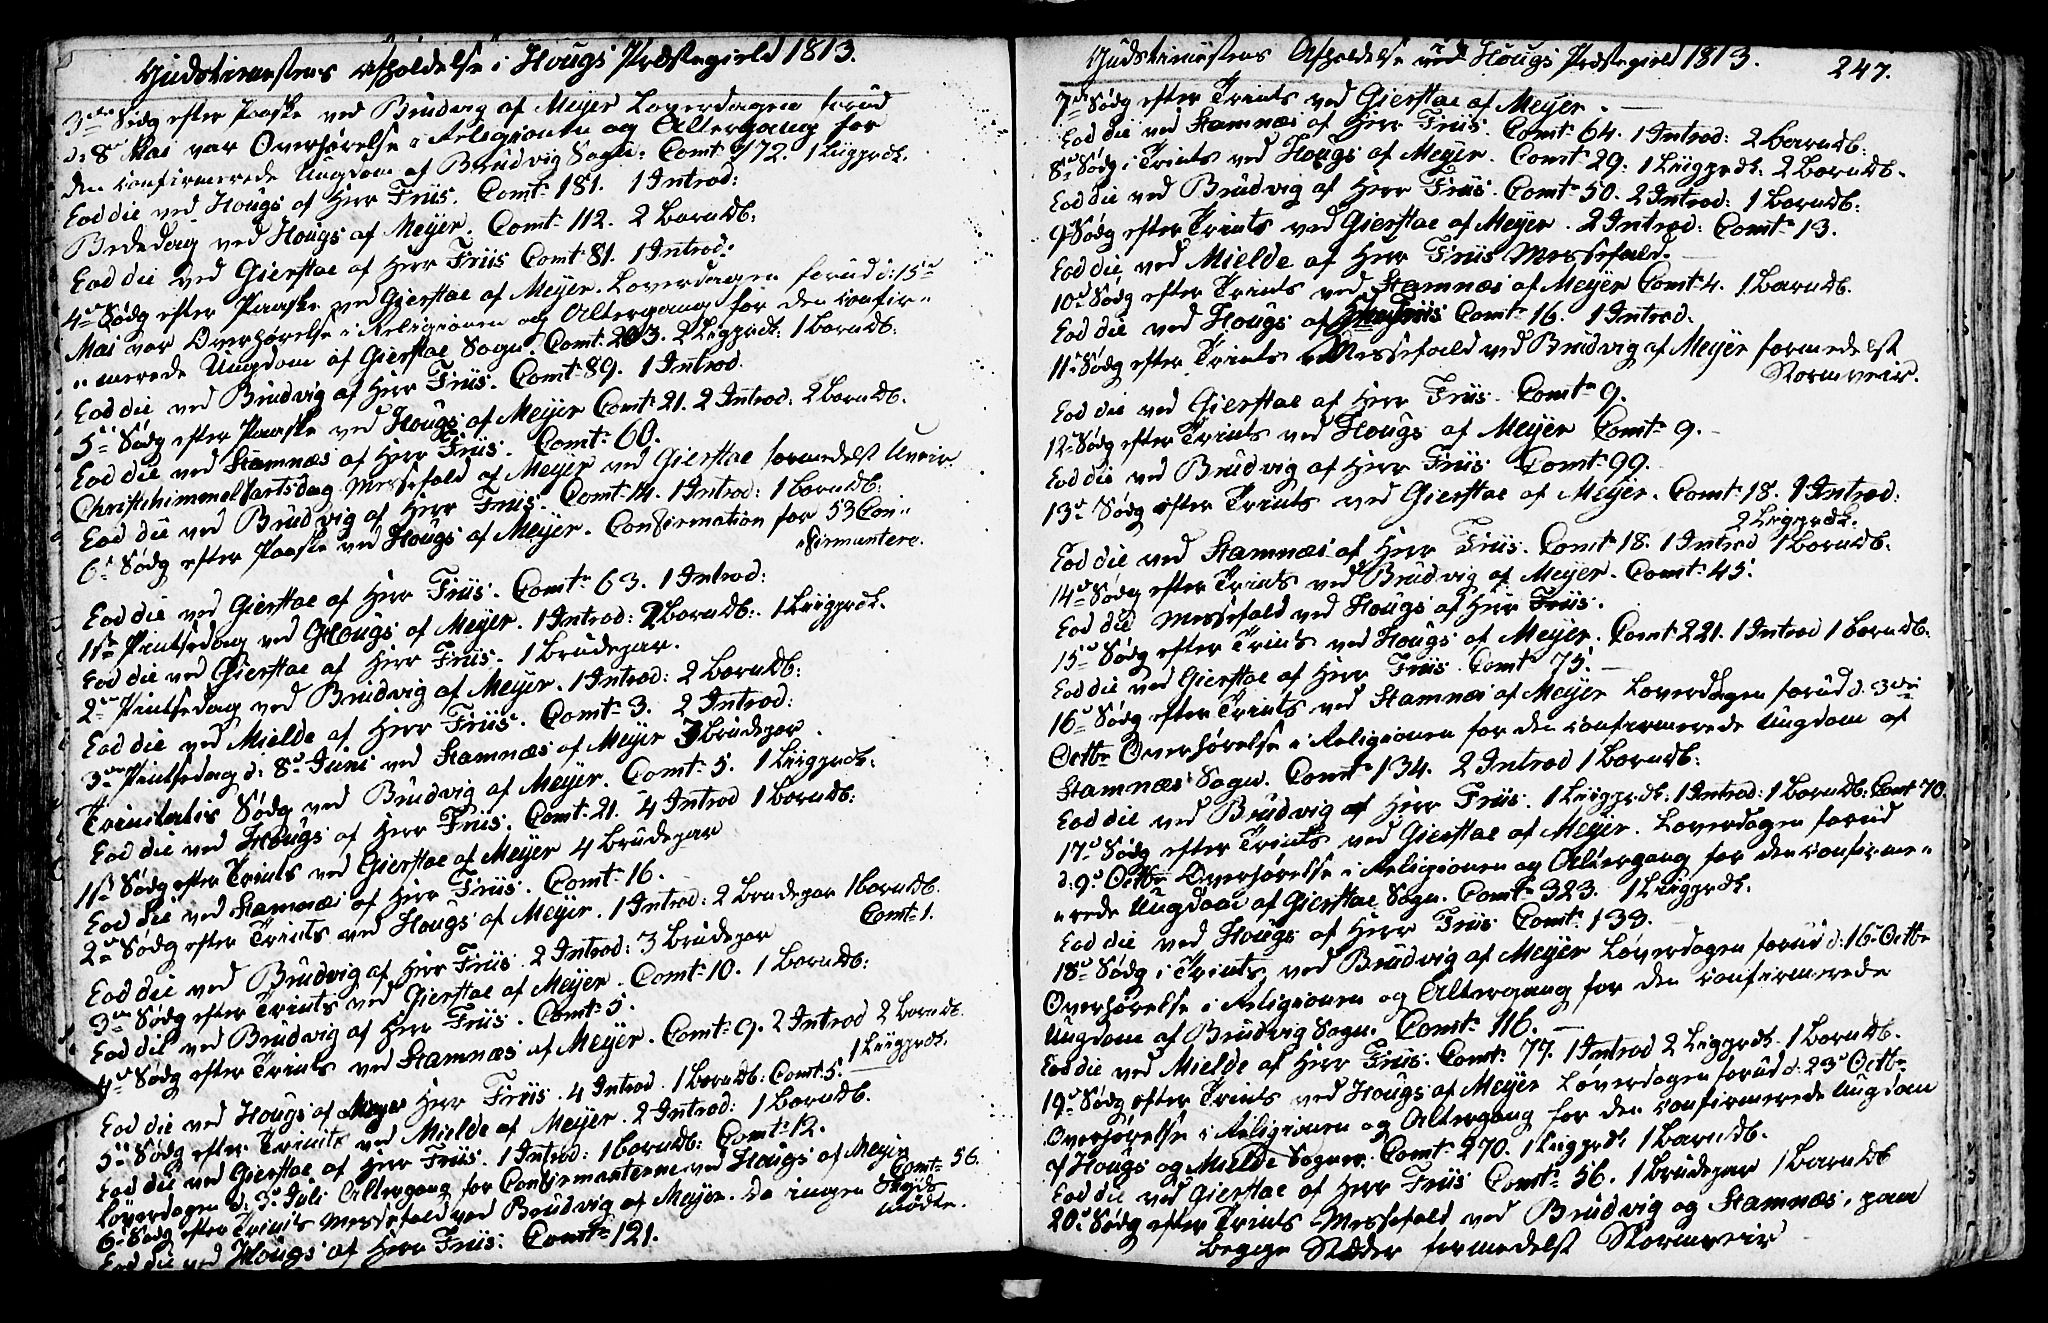 Gudstienestens Afholdelse i Hougs Præstegield 1813.
3die Sødg efter Paaske ved Brudvig af Meyer Løverdagen forud
d: 8de Mai var Overhørelse i Religionen og Altergang for
den confirmerede Ungdom af Brudvig Sogn. Comt: 172. 1 Liigprdk.
Eod die ved Hougs af Herr Friis. Comt: 181. 1 Introd:
Bededag ved Hougs af Meyer. Comt: 112. 2 Barndb:
Eod die ved Gierstae af Herr Friis Comt: 81. 1 Introd:
4de Sødg efter Paaske ved Gierstae af Meyer. Løverdagen forud d: 15de
Mai var Overhørelse i Religionen og Altergang for den confir-
merede Ungdom af Gierstae Sogn. Comt: 203. 2 Ligprdk. 1 Barndb:
Eod die ved Brudvig af Herr Friis. Comt: 89. 1 Introd.
5te Sødg efter Paaske ved Hougs af Meyer Comt: 21. 2 Introd: 2 Barndb.
Eod die ved Stamnæs af Herr Friis. Comt: 60.
Christi himmelfartsdag Messefald af Meyer ved Gierstae formedelst Uveir.
Eod die ved Brudvig af Herr Friis. Comt: 14. 1 Introd: 1 Barndb:
6te Sødg efter Paaske ved Hougs af Meyer. Confirmation for 53 Con-
firmantere.
Eod die ved Gierstae af Herr Friis. Comt: 63. 1 Introd:
1ste Pintsedag ved Hougs af Meyer. 1 Introd: 2 Barndb: 1 Liigprdk.
Eod die ved Gierstae af Herr Friis. 1 Brudepar.
2den Pintsedag ved Brudvig af Meyer. 1 Introd: 2 Barndb:
Eod die ved Mielde af Herr Friis. Comt: 3. 2 Introd:
3die Pintsedag d: 8de Juni ved Stamnæs af Meyer 3 Brudepar
Trinitatis Sødg ved Brudvig af Meyer. Comt: 5. 1 Liigprdk:
Eod die ved Hougs af Herr Friis. Comt: 21. 4 Introd 1 Barndb:
1ste Sødg efter Trints ved Gierstae af Meyer 4 Brudepar
Eod die ved Stamnæs af Herr Friis. Comt: 16.
2den Sødg efter Trints ved Hougs af Meyer. 1 Introd: 2 Brudepar 1 Barndb.
Comt: 1.
Eod die ved Brudvig af Herr Friis. 2 Introd: 3 Brudepar
3die Sødg efter Trints ved Gierstae af Meyer. Comt: 10. 1 Barndb:
Eod die ved Brudvig af Herr Friis. Comt: 5.
4de Sødg efter Trints ved Stamnæs af Meyer. Comt: 9. 2 Introd 2 Barndb.
1 Liigprdk.
Eod die ved Hougs af Herr Friis. 4 Introd. 1 Barndb: Comt: 5.
5te Sødg efter Trinits ved Mielde af Meyer. 2 Introd: 1 Barndb.
Eod die ved Gierstae af Herr Friis. 1 Introd: 1 Barndb: Comt: 12.
Løverdagen d: 3de Juli Altergang for Confirmanterne ved Hougs af Meyer
Comt: 56.
6te Sødg efter Trinits Messefald ved Brudvig af Meyer. Da ingen
mødte.
Eod die ved Hougs af Herr Friis. Comt: 121.
Gudstienestens Afholdelse ved Hougs Præstegield 1813. 247.
7de Sødg efter Trints ved Gierstae af Meyer.
Eod die ved Stamnæs af Herr Friis. Comt: 64. 1 Introd: 2 Barndb:
8de Sødg i Trints ved Hougs af Meyer. Comt: 29. 1 Liigprdk: 2 Barndb.
Eod die ved Brudvig af Herr Friis. Comt: 50. 2 Introd: 1 Barndb:
9de Sødg efter Trints ved Gierstae af Meyer. 2 Introd: Comt: 13.
Eod die ved Mielde af Herr Friis Messefald.
10de Sødg efter Trints ved Stamnæs af Meyer Comt: 4. 1 Barndb.
Eod die ved Hougs af Friis Comt: 16. 1 Introd.
11te Sødg efter Trints Messefald ved Brudvig af Meyer formedelst
Stormveir.
Eod die ved Gierstae af Herr Friis. Comt: 9.
12te Sødg efter Trints ved Hougs af Meyer Comt: 9.
Eod die ved Brudvig af Herr Friis Comt: 99.
13de Sødg efter Trints ved Gierstae af Meyer. Comt: 18. 1 Introd:
2 Liigprdk.
Eod die ved Stamnæs af Herr Friis. Comt: 18. 1 Introd 1 Barndb.
14de Sødg efter Trints ved Brudvig af Meyer. Comt: 45.
Eod die Messefald ved Hougs af Herr Friis.
15de Sødg efter Trints ved Hougs af Meyer. Comt: 221. 1 Introd 1 Barndb.
Eod die ved Gierstae af Herr Friis. Comt: 75.
16de Sødg efter Trints ved Stamnæs af Meyer Løverdagen forud d. 3die
Octbr Overhørelse i Religionen for den confirmerede Ungdom af
Stamnæs Sogn. Comt: 134. 2 Introd 1 Barndb:
Eod die ved Brudvig af Herr Friis. 1 Liigprdk: 1 Introd: 1 Barndb: Comt 70.
17de Sødg efter Trints ved Gierstae af Meyer. Løverdagen forud
d: 9de Octbr Overhørelse i Religionen og Altergang for den confirme-
rede Ungdom af Gierstae Sogn. Comt: 323. 1 Liigprdk.
Eod die ved Hougs af Herr Friis Comt: 133.
18de Sødg i Trints ved Brudvig af Meyer Løverdagen forud d: 16de Octbr
Overhørelse i Religionen og Altergang for den confirmerede
Ungdom af Brudvig Sogn. Comt: 116.
Eod die ved Mielde af Herr Friis. Comt: 77. 1 Introd 2 Ligprdk. 1 Barndb.
19de Sødg efter Trints ved Hougs af Meyer Løverdagen forud d: 23de Octbr
Overhørelse i Religionen og Altergang for den confirmerede Ungdom
af Hougs og Mielde Sogner. Comt: 270. 1 Liigprdk 1 Barndb.
Eod die ved Gierstae af Herr Friis Comt: 56. 1 Brudepar 1 Barndb
20de Sødg efter Trints Messefald ved Brudvig og Stamnæs, paa
begge Stæder formedelst Stormveir